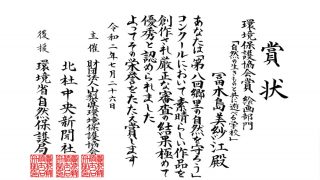 賞状
環境保護協会賞 絵画部門
「自然の生きものと共に遊べる学校」
冨水島美紗江殿
あなたは「第八回郷里の自然を守ろう」
コンクールにおいて素晴らしい作品を
創作され厳正なる審査の結果極めて
優秀と認められました
よってその栄誉をたたえ賞します
令和二年七月二十六日
主催 財団法人山梨県環境保護協会
北杜中央新聞社
後援 環境省自然保護局